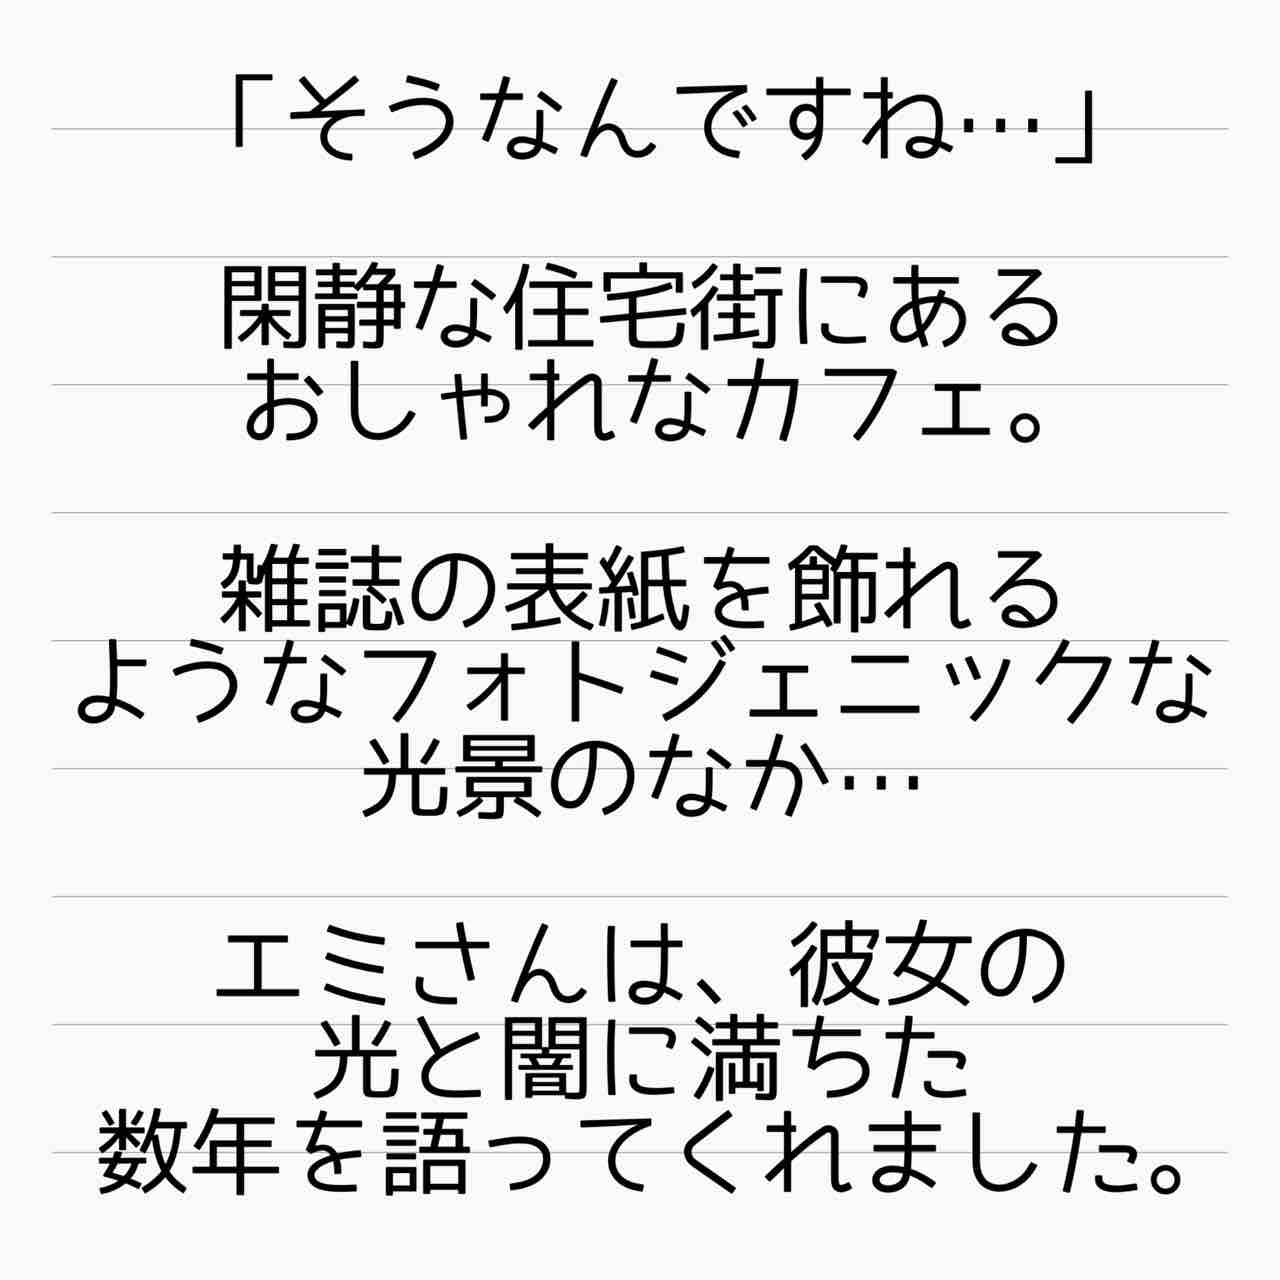 「そうなんですね…」
閑静な住宅街にある
おしゃれなカフェ。
雑誌の表紙を飾れる
ようなフォトジェニックな
光景のなか…
エミさんは、彼女の
光と闇に満ちた
数年を語ってくれました。